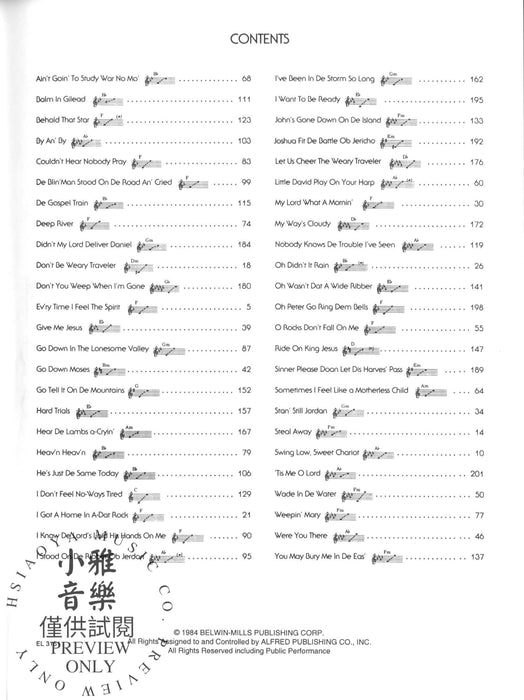 CONTENTS
Ain't Goin' To Study War No Mo' 68
Balm In Gilead 111
Behold That Star 123
By An' By 103
Couldn't Hear Nobody Pray 83
De Blin' Man Stood On De Road An' Cried 99
De Gospel Train 115
Deep River 74
Didn't My Lord Deliver Daniel 184
Don't Be Weary Traveler 18
Don't You Weep When I'm Gone 180
Ev'ry Time I Feel The Spirit 5
Give Me Jesus 39
Go Down In The Lonesome Valley 87
Go Down Moses 42
Go Tell It On De Mountains 152
Hard Trials 157
Hear De Lambs a-Cryin' 167
Heav'n Heav'n 79
He's Just De Same Today 106
I Don't Feel No-Ways Tired 129
I Got A Home In A-Dat Rock 21
I Know De Lord's Laid His Hands On Me 90
I Stood On De Ribber Ob Jerdon 95
I've Been In De Storm So Long 162
I Want To Be Ready 195
John's Gone Down On De Island 133
Joshua Fit De Battle Ob Jericho 192
Let Us Cheer The Weary Traveler 176
Little David Play On Your Harp 60
My Lord What A Mornin' 30
My Way's Cloudy 172
Nobody Knows De Trouble I've Seen 119
Oh Didn't It Rain 26
Oh Wasn't Dat A Wide Ribber 141
Oh Peter Go Ring Dem Bells 198
O Rocks Don't Fall On Me 55
Ride On King Jesus 147
Sinner Please Doan Let Dis Harves' Pass 189
Sometimes I Feel Like a Motherless Child 64
Stan' Still Jordan 34
Steal Away 14
Swing Low, Sweet Chariot 10
'Tis Me O Lord 201
Wade In De Water 50
Weepin' Mary 77
Were You There 46
You May Bury Me In De Eas' 137
© 1984 BELWIN-MILLS PUBLISHING CORP.
All Rights Assigned to and Controlled by ALFRED PUBLISHING CO., INC.
All Rights Reserved including Public Performance
HSIAOYA MUSIC CO. PREVIEW ONLY
小雅
音樂
僅供試閱
PREVIEW
ONLY